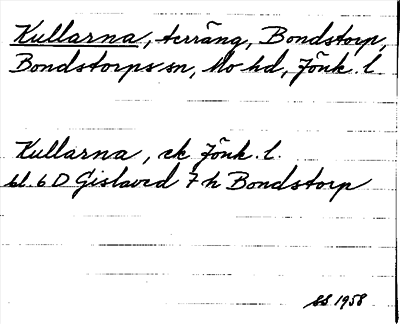 Kullarna, terräng, Bondstorp,
Bondstorps sn, Mo hd, Jönk. l.
Kullarna, ek Jönk. l.
bl. 6 D Gislaved 7 h Bondstorp
SS. 1958